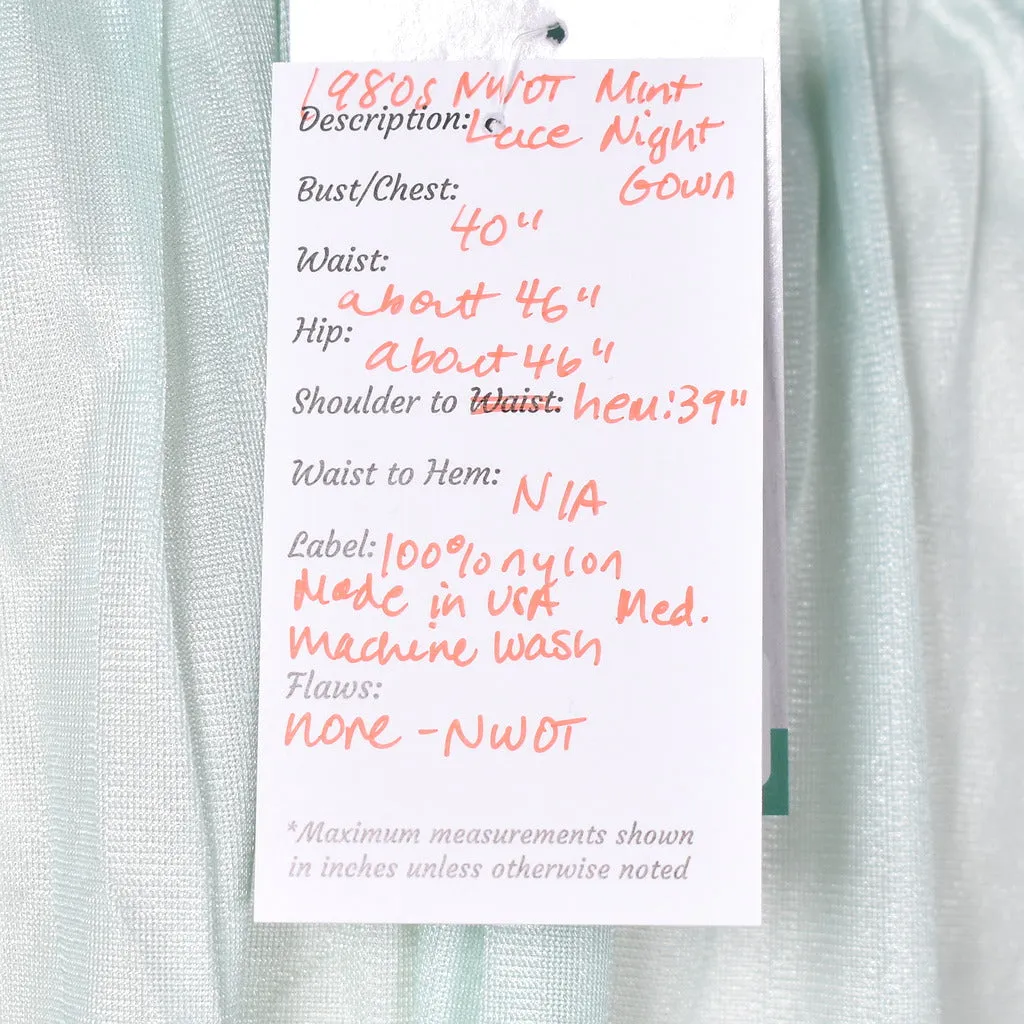 1980s NWOT Mint
Description: Lace Night
Gown
Bust/Chest:
40"
Waist:
about 46"
Hip:
about 46"
Shoulder to Waist: hem: 39"
Waist to Hem:
N/A
Label: 100% nylon
Made in USA Med.
Machine Wash
Flaws:
none - NWOT
*Maximum measurements shown
in inches unless otherwise noted